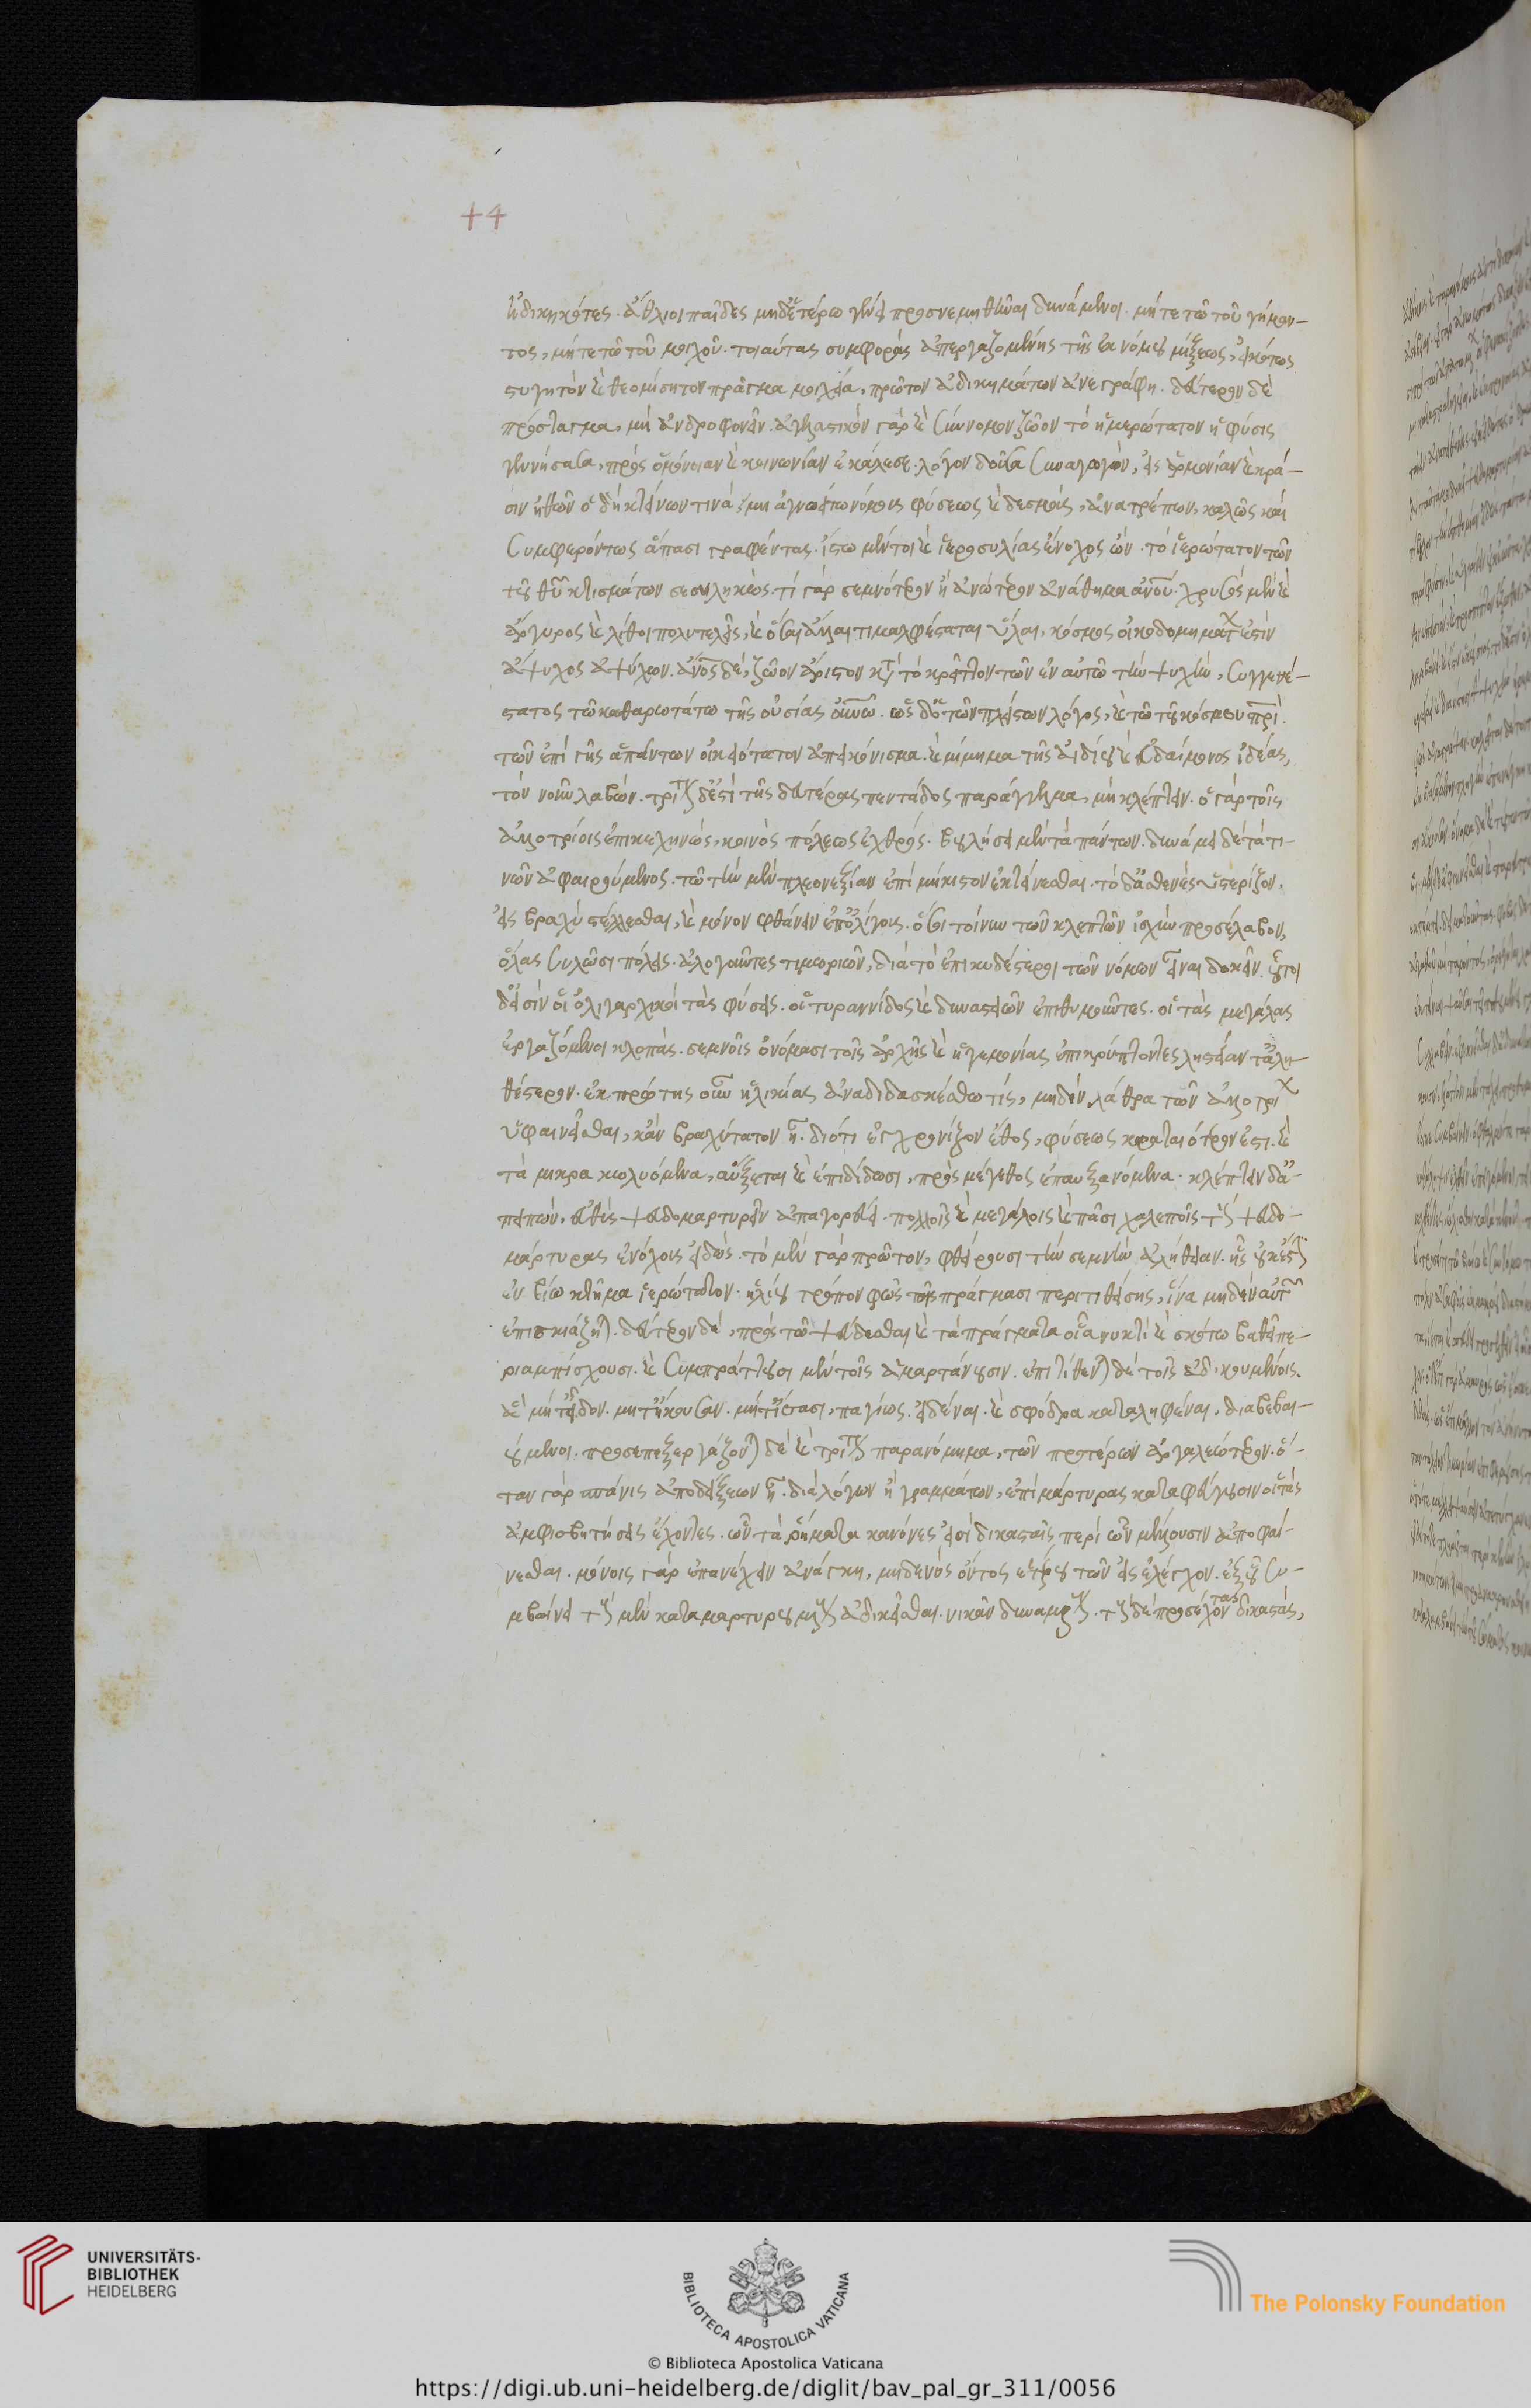 44
ἠδικηκότες. ἄθλιοι παῖδες μηδετέρω γένει προσνεμηθῆναι δυνάμενοι. μήτε τῶ τοῦ γήμαν-
τος, μήτε τῶ τοῦ μοιχοῦ. τοιαύτας συμφορὰς ἀπεργαζομένης τῆς ἐκνόμου μίξεως, εἰκότως
στυγητὸν καὶ θεομίσητον πρᾶγμα μοιχεία, πρῶτον ἀδικημάτων ἀνεγράφη. δεύτερον δὲ
πρόσταγμα, μὴ ἀνδροφονεῖν. ἀγελαστικὸν γὰρ καὶ σύννομον ζῶον τὸ ἡμερώτατον ἡ φύσις
γεννήσασα, πρὸς ὁμόνοιαν καὶ κοινωνίαν ἐκάλεσε. λόγον δοῦσα συναγωγὸν, εἰς ἁρμονίαν καὶ κρᾶ-
σιν ἠθῶν ὁ δὴ κτείνων τινὰ μὴ ἀγνοείτω νόμους φύσεως καὶ δεσμοὺς, ἀνατρέπων, καλῶς καὶ
συμφερόντως ἅπασι γραφέντας. ἴστω μέντοι καὶ ἱεροσυλίας ἔνοχος ὤν. τὸ ἱερώτατον τῶν
τοῦ θυ κτισμάτων σεσυληκώς. τί γὰρ σεμνότερον ἢ ἁγιώτερον ἀνάθημα ἀνου. χρυσὸς μὲν καὶ
ἄργυρος καὶ λίθοι πολυτελεῖς, καὶ ὅσαι ἄλλαι τιμαλφέσταται ὗλαι, κόσμος οἰκοδομημάτων ἐστὶν
ἄψυχος ἀψύχων. ἄνος δέ, ζῶον ἄριστον κατὰ τὸ κρεῖττον τῶν ἐν αὐτῶ τὴν ψυχὴν, συγγενέ-
στατος τῶ καθαρωτάτω τῆς οὐσίας οὐνω. ὡς δ' ὁ τῶν πλείστων λόγος, καὶ τῶ τοῦ κόσμου πρι.
τῶν ἐπὶ γῆς ἁπάντων οἰκειότατον ἀπεικόνισμα. καὶ μίμημα τῆς ἀϊδίου καὶ εὐδαίμονος ἰδέας,
τὸν νοῦν λαβών. τρίτον δ' ἐστὶ τῆς δευτέρας πεντάδος παράγγελμα, μὴ κλέπτειν. ὁ γὰρ τοῖς
ἀλλοτρίοις ἐπικεχηνὼς, κοινὸς πόλεως ἐχθρός. βουλήσει μὲν τὰ πάντων. δυνάμει δὲ τά τι-
νῶν ἀφαιρούμενος. τῶ τὴν μὲν πλεονεξίαν ἐπὶ μήκιστον ἐκτείνεσθαι. τὸ δ' ἀσθενὲς ὑστερίζον.
εἰς βραχὺ στέλλεσθαι, καὶ μόνον φθάνειν ἐπ' ὀλίγους. ὅσοι τοίνυν τῶν κλεπτῶν ἰσχὺν προσέλαβον,
ὅλας συλῶσι πόλεις. ἀλογοῦντες τιμωριῶν, διὰ τὸ ἐπικυδέστεροι τῶν νόμων εἶναι δοκεῖν. οὗτοι
δ' εἰσὶν οἱ ὀλιγαρχικοὶ τὰς φύσεις. οἱ τυραννίδος καὶ δυναστειῶν ἐπιθυμοῦντες. οἱ τὰς μεγάλας
ἐργαζόμενοι κλοπάς. σεμνοῖς ὀνόμασι τοῖς ἀρχῆς καὶ ἡγεμονίας ἐπικρύπτοντες λῃστείαν τἀλη-
θέστερον. ἐκ πρώτης οὖν ἡλικίας ἀναδιδασκέσθω τίς, μηδὲν λάθρα τῶν ἀλλοτρίων
ὑφαιρεῖσθαι, κἂν βραχύτατον ᾖ. διότι ἐγχρονίζον ἔθος, φύσεως κραταιότερόν ἐστι. καὶ
τὰ μικρὰ κωλυόμενα, αὔξεται καὶ ἐπιδίδωσι, πρὸς μέγεθος ἐπαυξανόμενα. κλέπτειν δ' ἀ-
πειπών. αὖθις ψευδομαρτυρεῖν ἀπαγορεύει. πολλοῖς καὶ μεγάλοις καὶ πᾶσι χαλεποῖς τοὺς ψευδο-
μάρτυρας ἐνόχους εἰδώς. τὸ μὲν γὰρ πρῶτον, φθείρουσι τὴν σεμνὴν ἀλήθειαν. ἧς οὐκ ἔστιν
ἐν βίω κτῆμα ἱερώτατον. ἡλίου τρόπον φῶς τοῖς πράγμασι περιτιθείσης, ἵνα μηδὲν αὐτῶν
ἐπισκιάζηται. δεύτερον δέ, πρὸς τῶ ψεύδεσθαι καὶ τὰ πράγματα οἷα νυκτὶ καὶ σκότω βαθεῖ πε-
ριαμπίσχουσι. καὶ συμπράττουσι μὲν τοῖς ἁμαρτάνουσιν. ἐπιτίθενται δὲ τοῖς ἀδικουμένοις.
ἃ μήτ' εἶδον. μήτ' ἤκουσαν. μήτ' ἴσασι, παγίως. εἰδέναι. καὶ σφόδρα κατειληφέναι, διαβεβαι-
ούμενοι. προσεπεξεργάζονται δὲ καὶ τρίτον παρανόμημα, τῶν προτέρων ἀργαλεώτερον. ὅ-
ταν γὰρ σπάνις ἀποδείξεων ᾖ. διὰ λόγων ἢ γραμμάτων, ἐπὶ μάρτυρας καταφεύγουσιν οἱ τὰς
ἀμφισβητήσεις ἔχοντες. ὧν τὰ ῥήματα κανόνες εἰσὶ δικασταῖς περὶ ὧν μέλλουσιν ἀποφαί-
νεσθαι. μόνοις γὰρ ἐπανέχειν ἀνάγκη, μηδενὸς ὄντος ἑτέρου τῶν εἰς ἔλεγχον. ἐξ οὗ συ-
μβαίνει τοὺς μὲν καταμαρτυρουμένους ἀδικεῖσθαι. νικᾶν δυναμένους. τοὺς δὲ προσέχοντας δικαστάς,
UNIVERSITÄTS-
BIBLIOTHEK
HEIDELBERG
BIBLIOTECA APOSTOLICA VATICANA
The Polonsky Foundation
© Biblioteca Apostolica Vaticana
https://digi.ub.uni-heidelberg.de/diglit/bav_pal_gr_311/0056